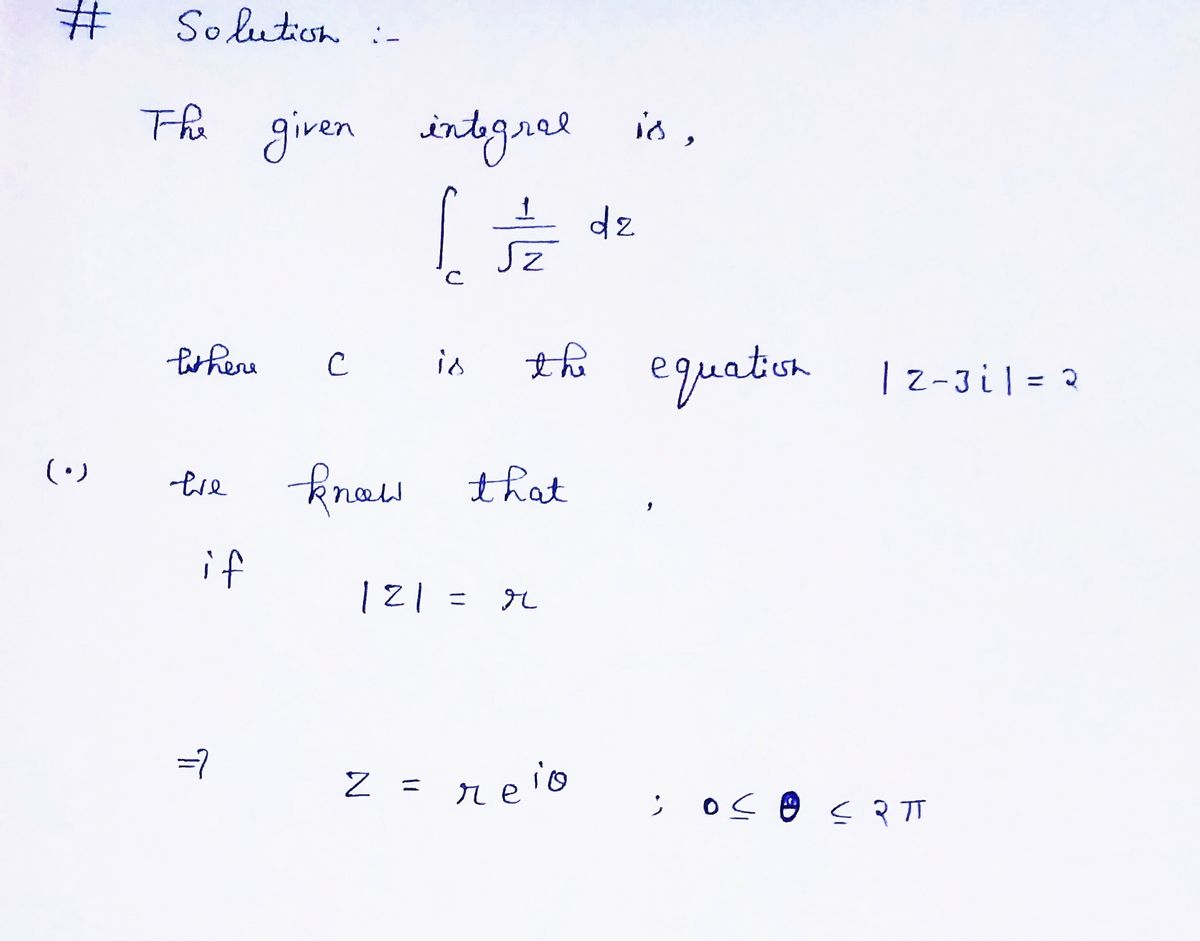 # Solution :-
The given integral is,
∫_C 1/√z dz
where C is the equation |z-3i| = 2
(•) we know that ,
if
|z| = r
=> z = re^iθ ; 0 ≤ θ ≤ 2π